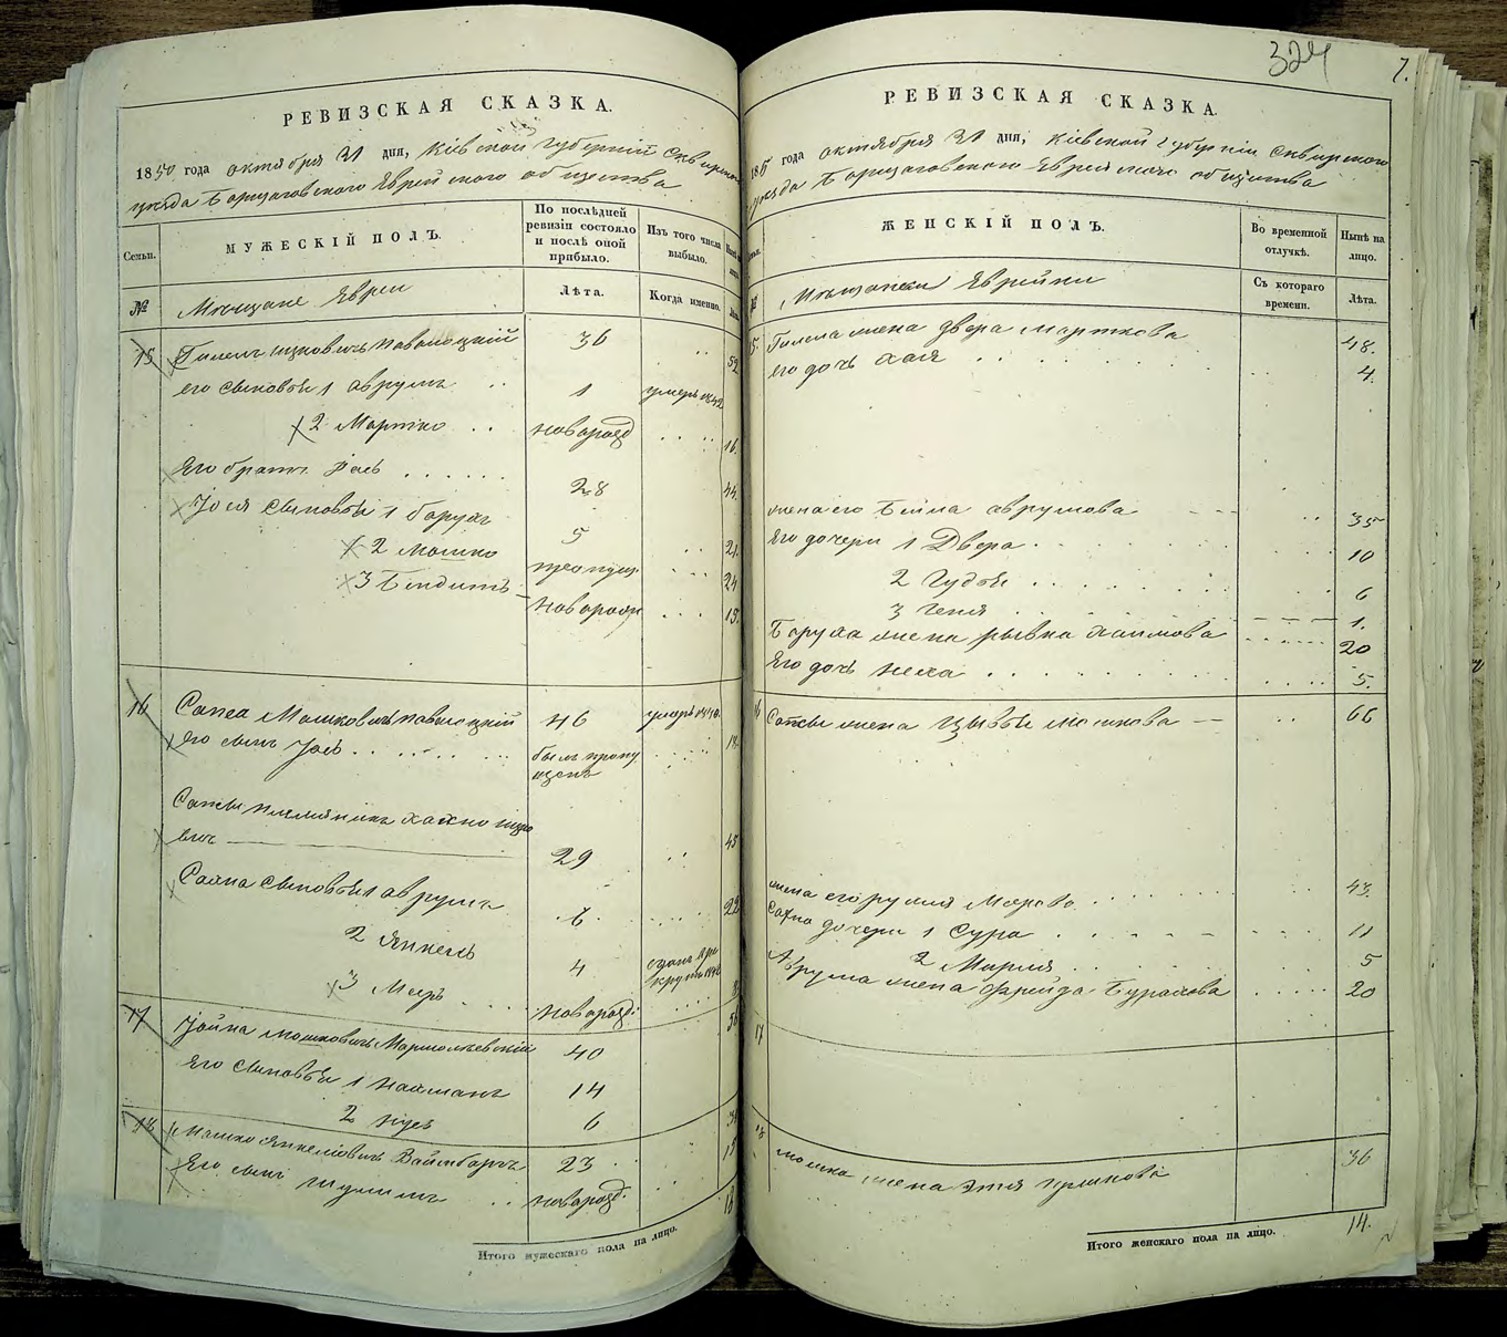 РЕВИЗСКАЯ СКАЗКА.
1850 года октября 31 дня, Кіевской Губерніи Сквирского
уезда Борщаговского Еврейского общества
Семьи.
МУЖЕСКІЙ ПОЛЪ.
По послѣдней ревизіи состояло и послѣ оной прибыло.
Изъ того числа выбыло.
№
Мѣщане Евреи
Лѣта.
Когда именно.
15 Гилель Ицковичъ Паволоцкій 36 52
его сыновья 1 Аврумъ 1 умеръ 1842
2 Мортко новорожд 16.
Его братъ Іось 28 44.
Іося сыновья 1 Борухъ 5 21.
2 Мошко пропущ. 24
3 Бендитъ новорожд 15.
16 Сапса Мошковичъ Паволоцкій 46 умеръ
Его сынъ Іось был пропу 18.
щенъ
Сапсы племянникъ Хахно Ицко
вичъ 29 45
Сахна сыновья 1 Аврумъ 6. 22
2 Янкель 4 сданъ
рекруты
3 Меръ новорожд. 8
17 Іойна Мошковичъ 40 56
Его сыновья 1 Нахманъ 14
2 6
18 Мошко Янкелевичъ Вайнбаргъ 23
Его сынъ новорожд. 16
Итого мужескаго пола на лицо.
324 7.
РЕВИЗСКАЯ СКАЗКА.
185 года октября 31 дня, Кіевской Губерніи Сквирского
уезда Борщаговского Еврейского общества
ЖЕНСКІЙ ПОЛЪ.
Во временной отлучкѣ.
Нынѣ на лицо.
№
Мѣщанки Еврейки
Съ котораго времени.
Лѣта.
5. Гилела жена Двера Морткова 48.
его дочь Хая 4.
жена его Бейла Аврумова 35
Его дочери 1 Двера 10
2 Гудья 6
3 Геня 1.
Боруха жена Рывка Хаимова 20
Его дочь Неха 5.
16 Сапсы жена Цывья Мошкова 66
жена его Рухля Меерова 43.
Сахна дочери 1 Сура 11
2 Марья 5
Аврума жена Фрейда Бурахова 20
17
18 Мошка жена Этя 36
14.
Итого женскаго пола на лицо.